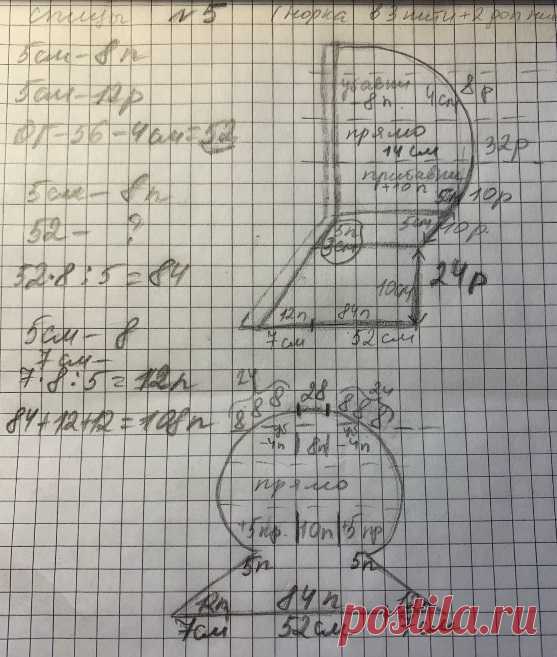 спицы №5 (норка в 3 нити + 2 доп нити
5см – 8п
5см – 12р
ОГ – 56 – 4см = 52
5см – 8п
52 – ?
52·8:5 = 84
5см – 8
7см –
7·8:5 = 12п
84+12+12 = 108п
убавки
-8п.
4см
8р
прямо
14см
32р
прибавки
+10п
5см
10р
5см
10р.
5п
3см
10см
24р
12п
84п
7см
52см
24
28
24
8 8 8
8 8 8
-4п
8п
-4п
прямо
+5пр.
10п
+5пр
5п
5п
12п
84п
7см
52см
postila.ru